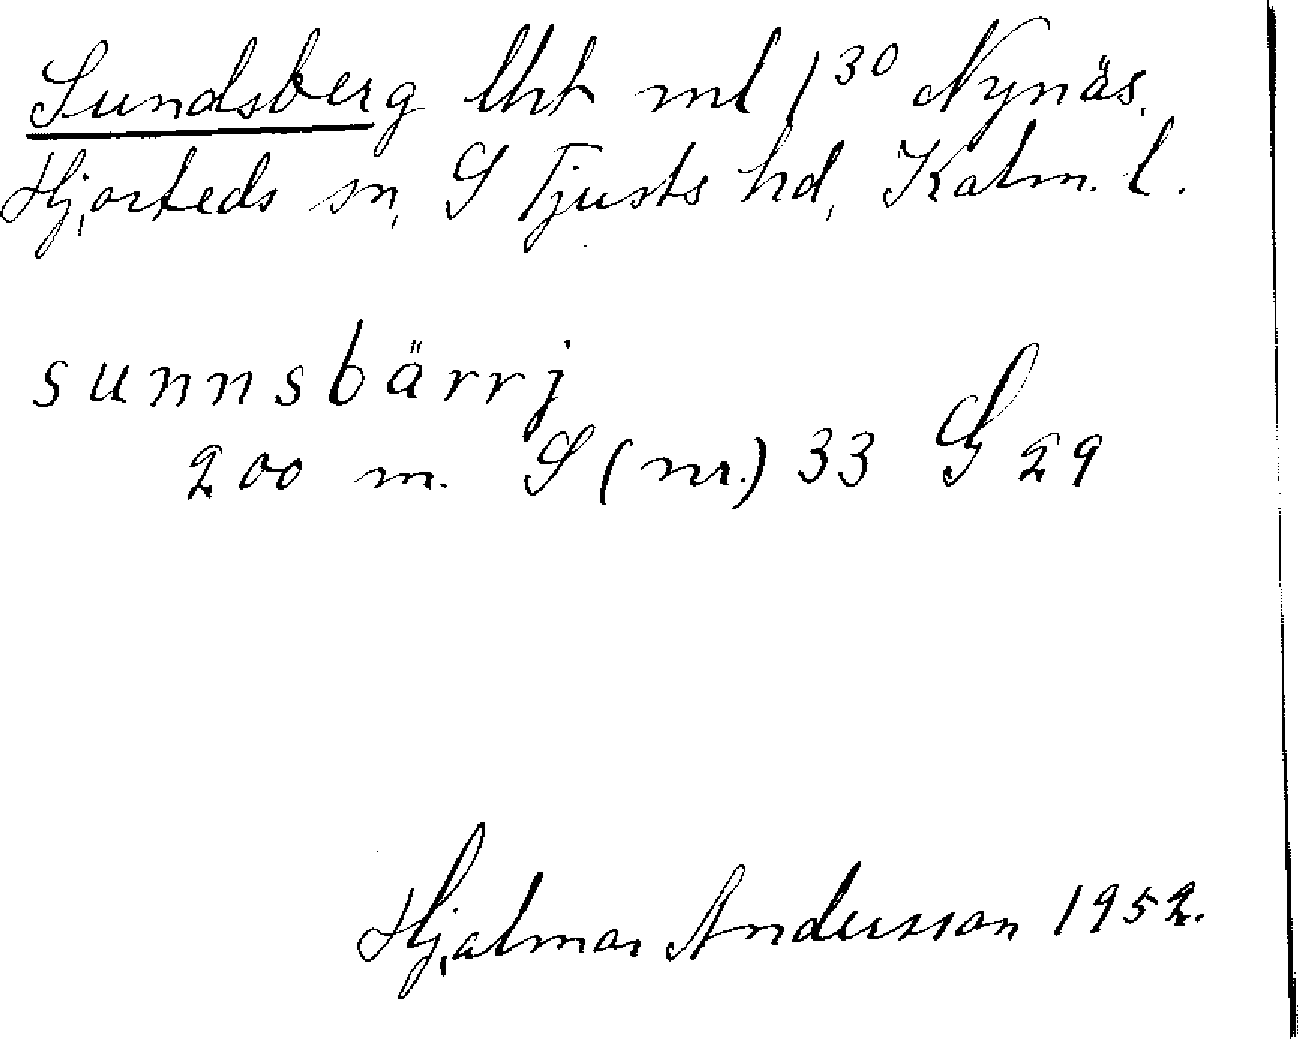 Sundsberg lht ml 1³⁰ Nynäs.
Hjorteds sn, S Tjusts hd, Kalm. l.
sunnsbärrj
200 m. S (nr.) 33 G 29
Hjalmar Andersson 1952.